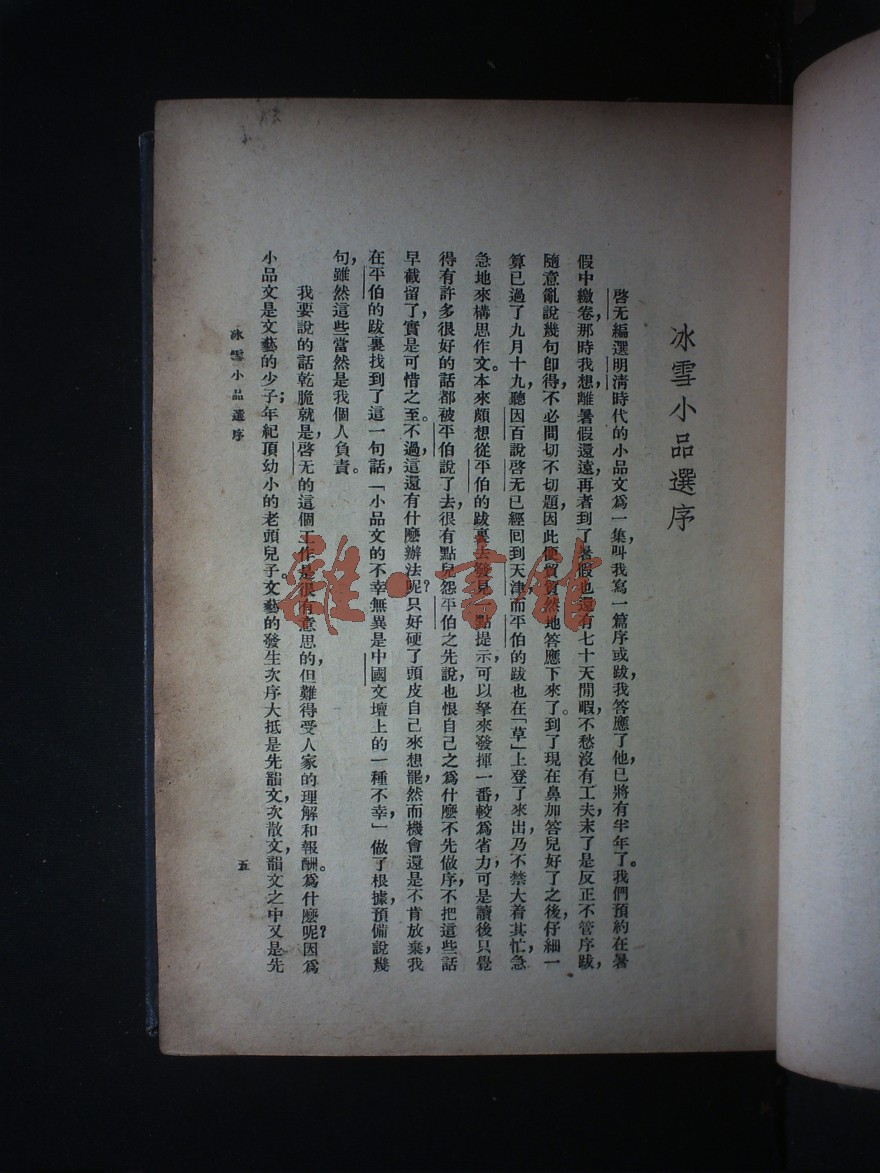 冰雪小品選序
啓无編選明清時代的小品文爲一集，叫我寫一篇序或跋，我答應了他，已將有半年了。我們預約在暑
假中繳卷，那時我想，離暑假還遠，再者到了暑假也還有七十天閒暇，不愁沒有工夫，末了是反正不管序跋，
隨意亂說幾句即得，不必問切不切題，因此便貿貿然地答應下來了。到了現在鼻加答兒好了之後，仔細一
算已過了九月十九，聽因百說啓无已經回到天津，而平伯的跋也在「草」上登了來出，乃不禁大着其忙，急
急地來構思作文。本來頗想從平伯的跋裏去發見一點提示，可以拏來發揮一番，較爲省力，可是讀後只覺
得有許多很好的話都被平伯說了去，很有點兒怨平伯之先說，也恨自己之爲什麼不先做序，不把這些話
早截留了，實是可惜之至。不過，這還有什麼辦法呢？只好硬了頭皮自己來想罷，然而機會還是不肯放棄，我
在平伯的跋裏找到了這一句話，「小品文的不幸無異是中國文壇上的一種不幸」，做了根據，預備說幾
句，雖然這些當然是我個人負責。
我要說的話乾脆就是，啓无的這個工作是很有意思的，但難得受人家的理解和報酬。爲什麼呢？因爲
小品文是文藝的少子，年紀頂幼小的老頭兒子。文藝的發生次序大抵是先韻文，次散文，韻文之中又是先
冰雪小品選序
五
雜·書館